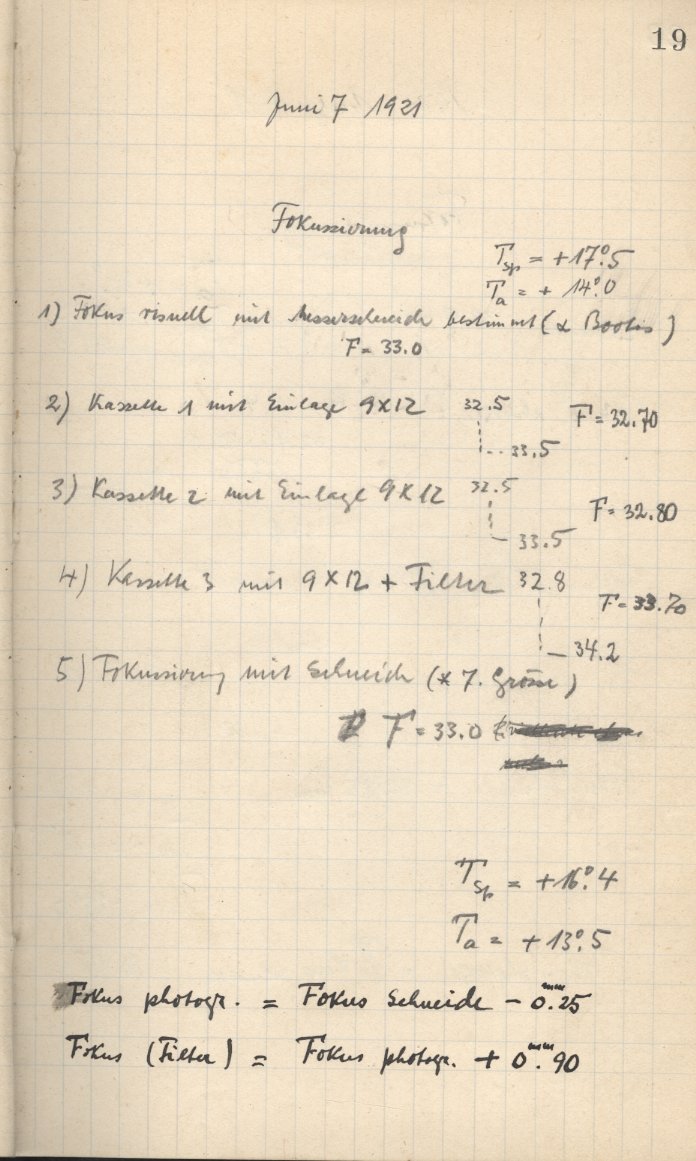 19
Juni 7 1921
Fokussierung
T_sp = +17°.5
T_a = + 14°.0
1) Fokus visuell mit Messerschneide bestimmt (α Bootis)
F = 33.0
2) Kassette 1 mit Einlage 9×12 32.5 F = 32.70
33.5
3) Kassette 2 mit Einlage 9×12 32.5 F = 32.80
33.5
4) Kassette 3 mit 9×12 + Filter 32.8 F = 33.70
34.2
5) Fokussierung mit Schneide (* 7. Grösse)
F = 33.0
T_sp = +16°.4
T_a = +13°.5
Fokus photogr. = Fokus Schneide − 0.ᵐᵐ25
Fokus (Filter) = Fokus photogr. + 0.ᵐᵐ90